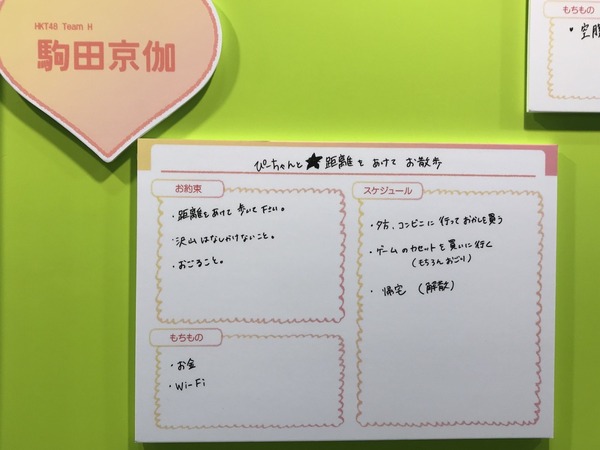 HKT48 Team H
駒田京伽
もちもの
・空腹
ぴーちゃんと★距離をあけて お散歩
お約束
・距離をあけて歩いて下さい。
・沢山はなしかけないこと。
・おごること。
もちもの
・お金
・Wi-Fi
スケジュール
・夕方、コンビニに行っておかしを買う
・ゲームのカセットを買いに行く
(もちろんおごり)
・帰宅 (解散)